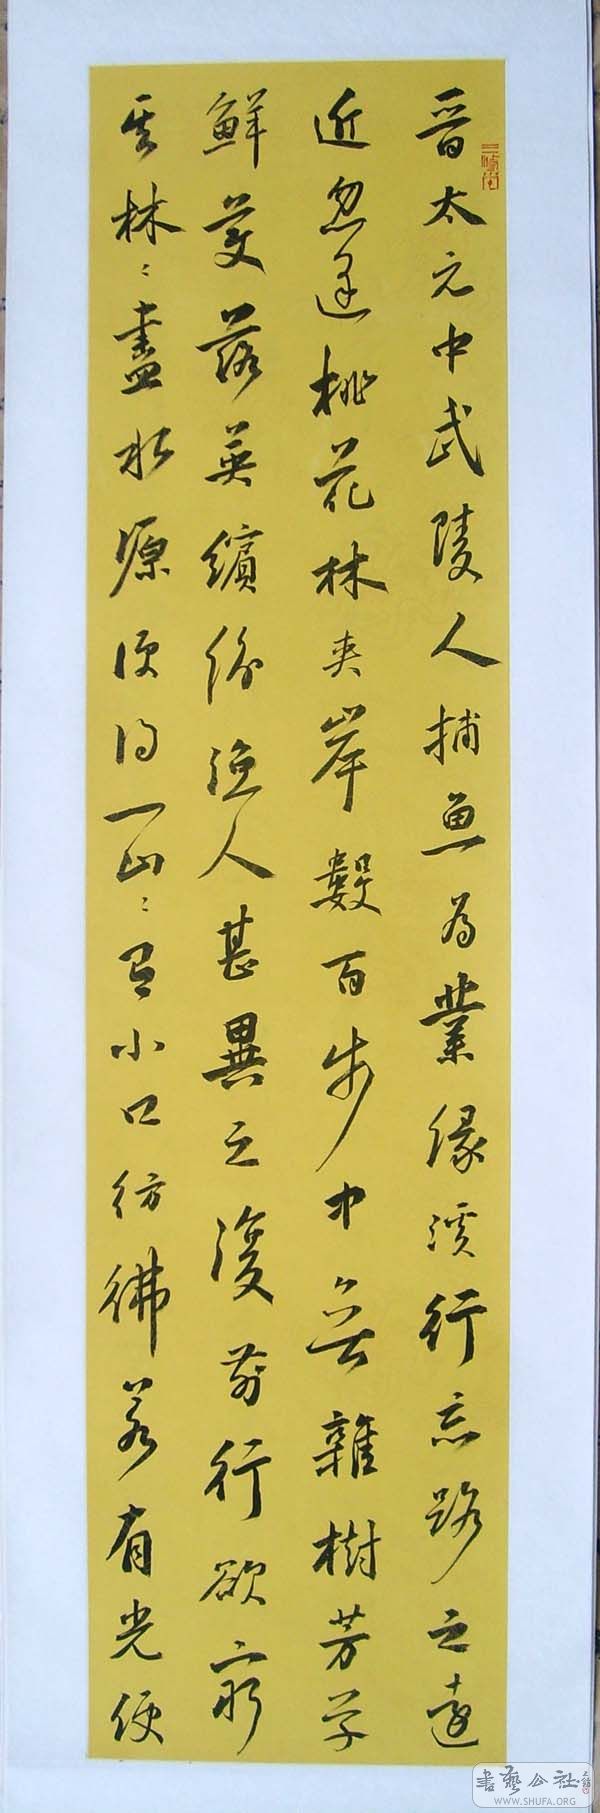 晋太元中武陵人捕魚為業缘溪行忘路之遠
近忽逢桃花林夹岸數百步中無雜樹芳草
鮮美落英繽紛漁人甚異之復前行欲窮
其林々盡水源便得一山々有小口彷彿若有光便
書藝公社
WWW.SHUFA.ORG